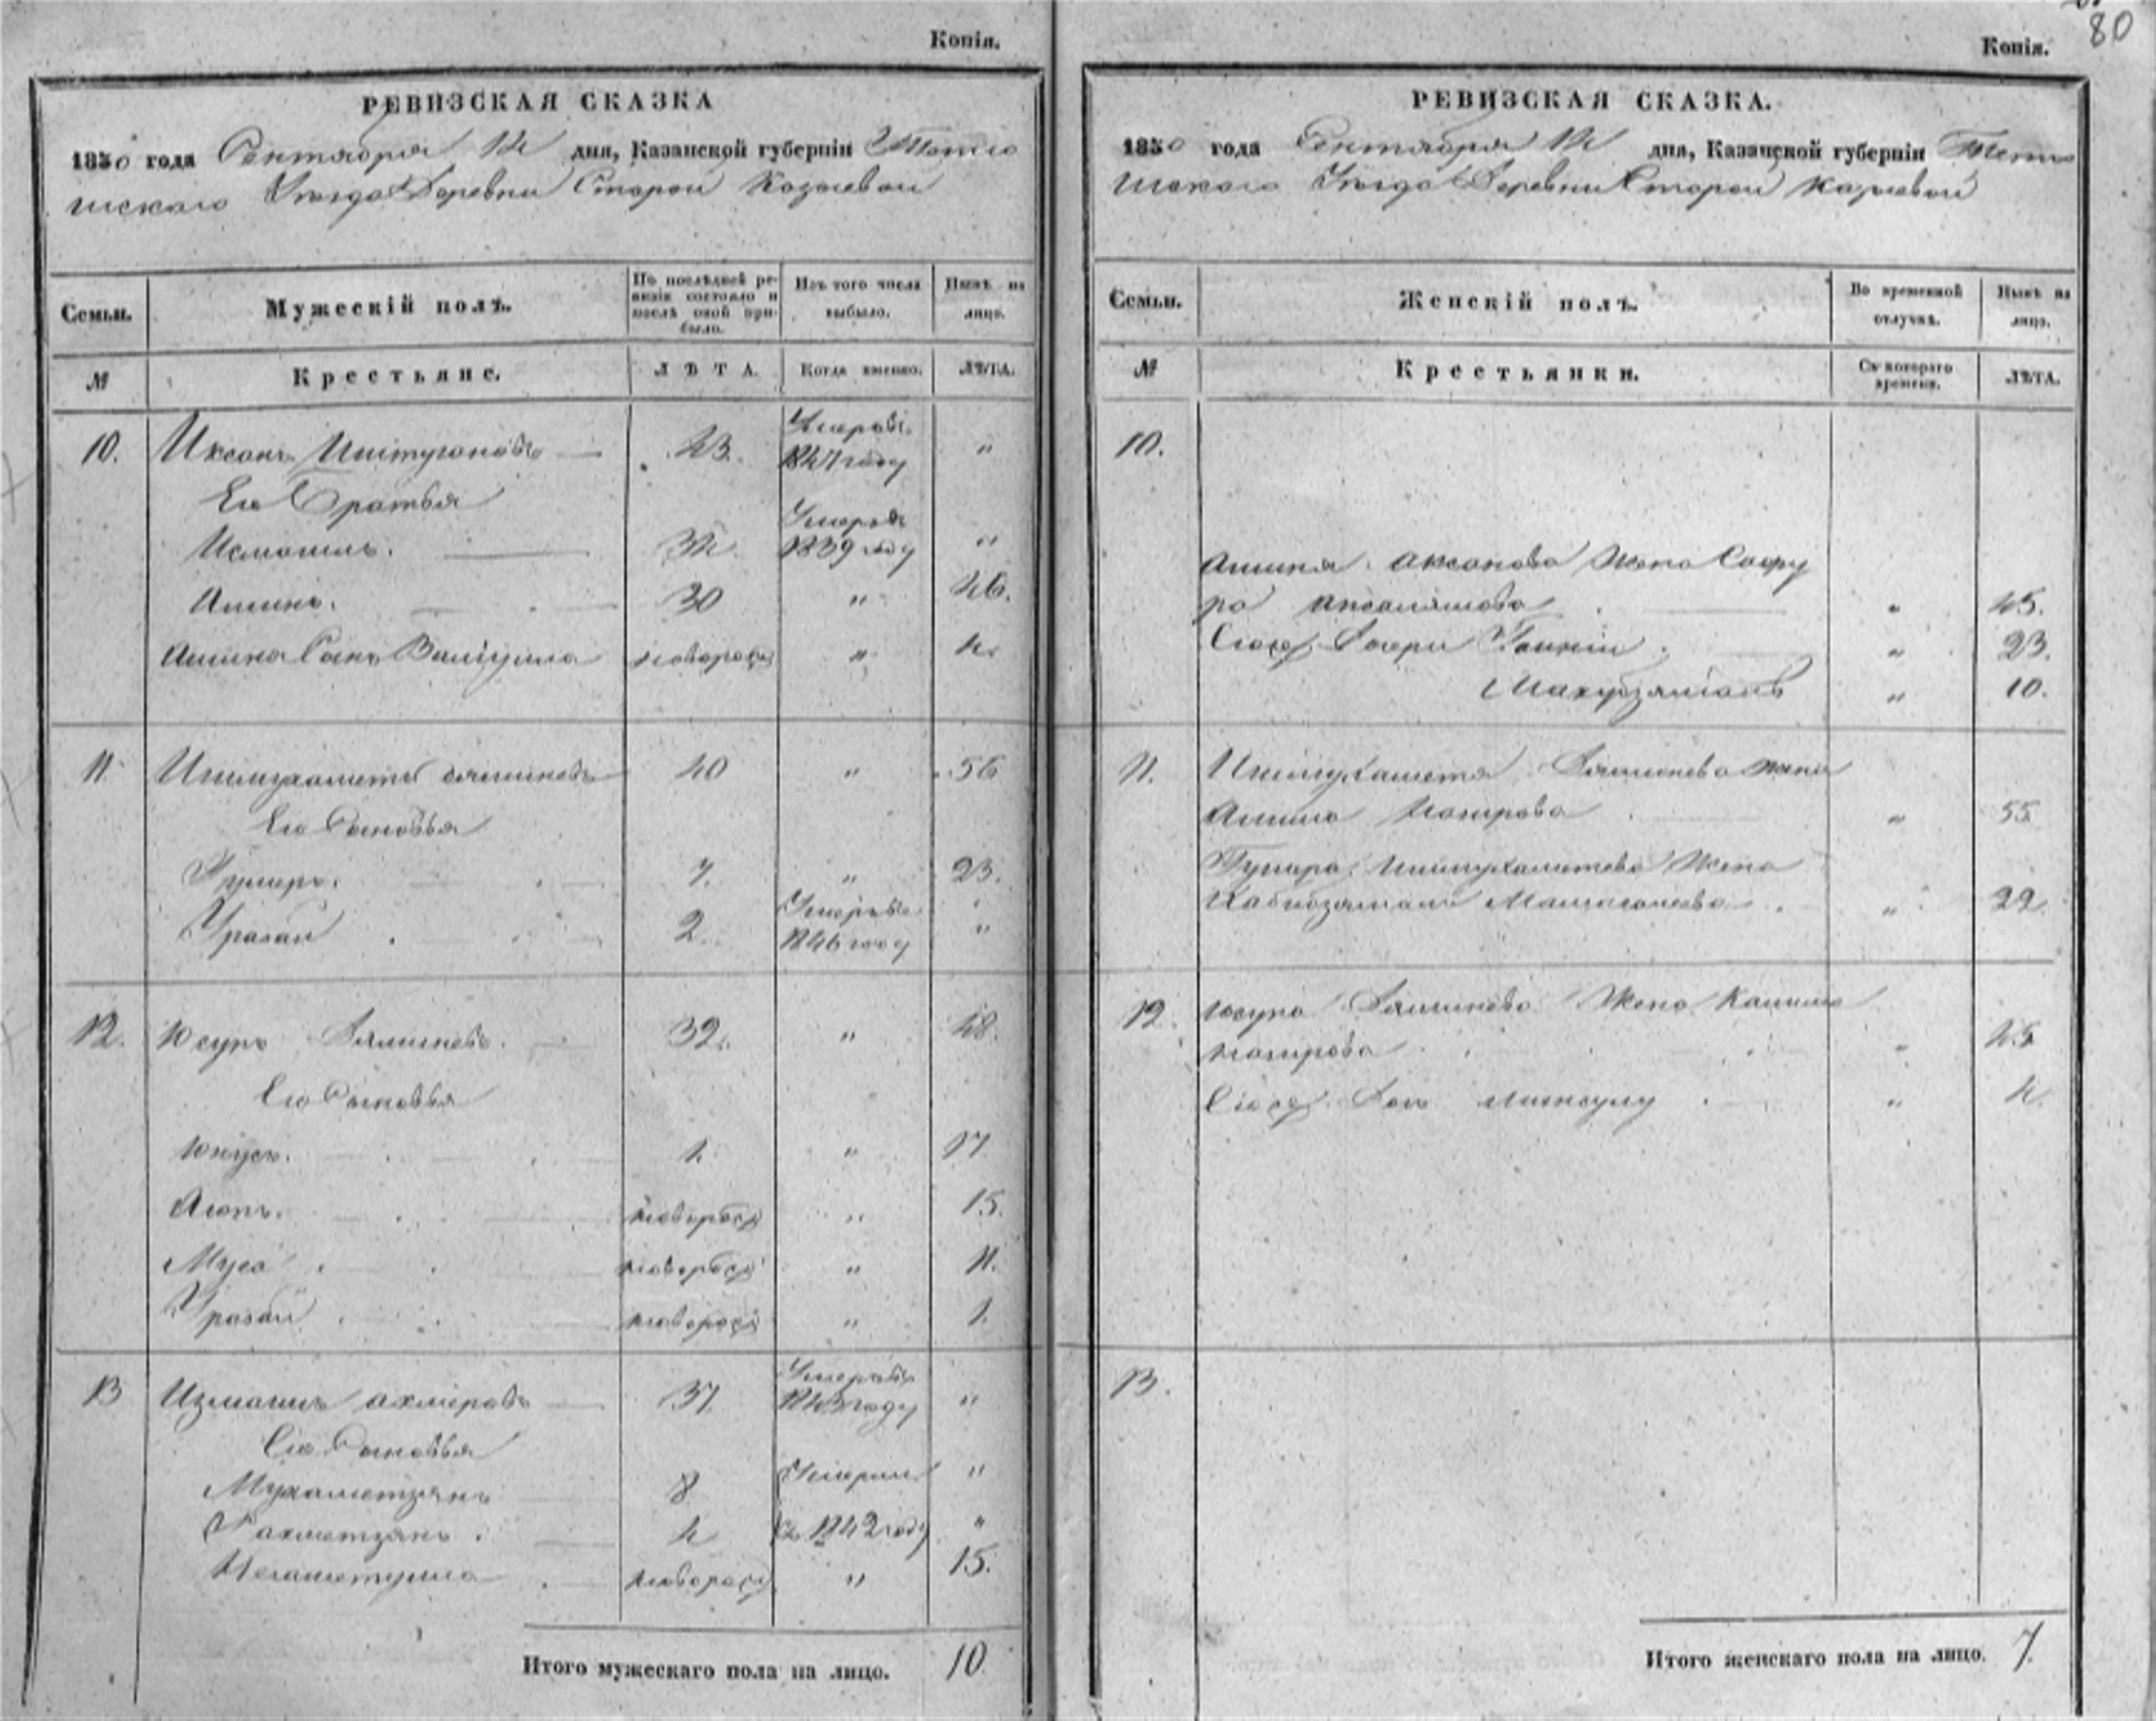 Копія.
РЕВИЗСКАЯ СКАЗКА
1850 года Сентября 14 дня, Казанской губерніи Тетю
шскаго Уезда Деревни Старой Казеевой
Семьи.
Мужескій полъ.
По послѣдней ре-
визіи состояло и
послѣ оной при-
было.
Изъ того числа
выбыло.
Нынѣ на
лицо.
№
Крестьяне.
ЛѢТА.
Когда именно.
ЛѢТА.
10. Иксанъ Иштугановъ 43. Умеръ въ 1847 году "
Его Братья
Исмаилъ. 34. Умеръ въ 1839 году "
Аминъ. 30 " 46.
Амина Сынъ новорож " 4.
11 Ишмухаметъ Саминевъ 40 " 56
Его Сыновья
Гумеръ. 7. " 23.
Уразай 2. Умеръ въ 1846 году "
12. Юсупъ 32. " 48.
Его Сыновья
Юнусъ. 1. " 17
Аюпъ. новорож " 15.
Муса новорож " 11.
Уразай новорож " 1.
13 Измаилъ Ахмеровъ 37. Умеръ въ 1843 году "
Его Сыновья
Мухаметзянъ 8 Умерли "
Рахметзянъ 4 въ 1842 году "
Негаметулла новорож " 15.
Итого мужескаго пола на лицо. 10
80
Копія.
РЕВИЗСКАЯ СКАЗКА.
1850 года Сентября 14 дня, Казанской губерніи Тетю
шскаго Уезда Деревни Старой Казеевой
Семьи.
Женскій полъ.
Во временной
отлучкѣ.
Нынѣ на
лицо.
№
Крестьянки.
Съ котораго
времени.
ЛѢТА.
10.
Амина Жена Сафу
ра " 45.
Дочери " 23.
" 10.
11. Ишмухаметя жена
Назирова " 55
Гумера Ишмухаметева Жена
" 22
12. Юсупа Жена Камила
Назирова " 45
Дочь " 4.
13.
Итого женскаго пола на лицо. 7.